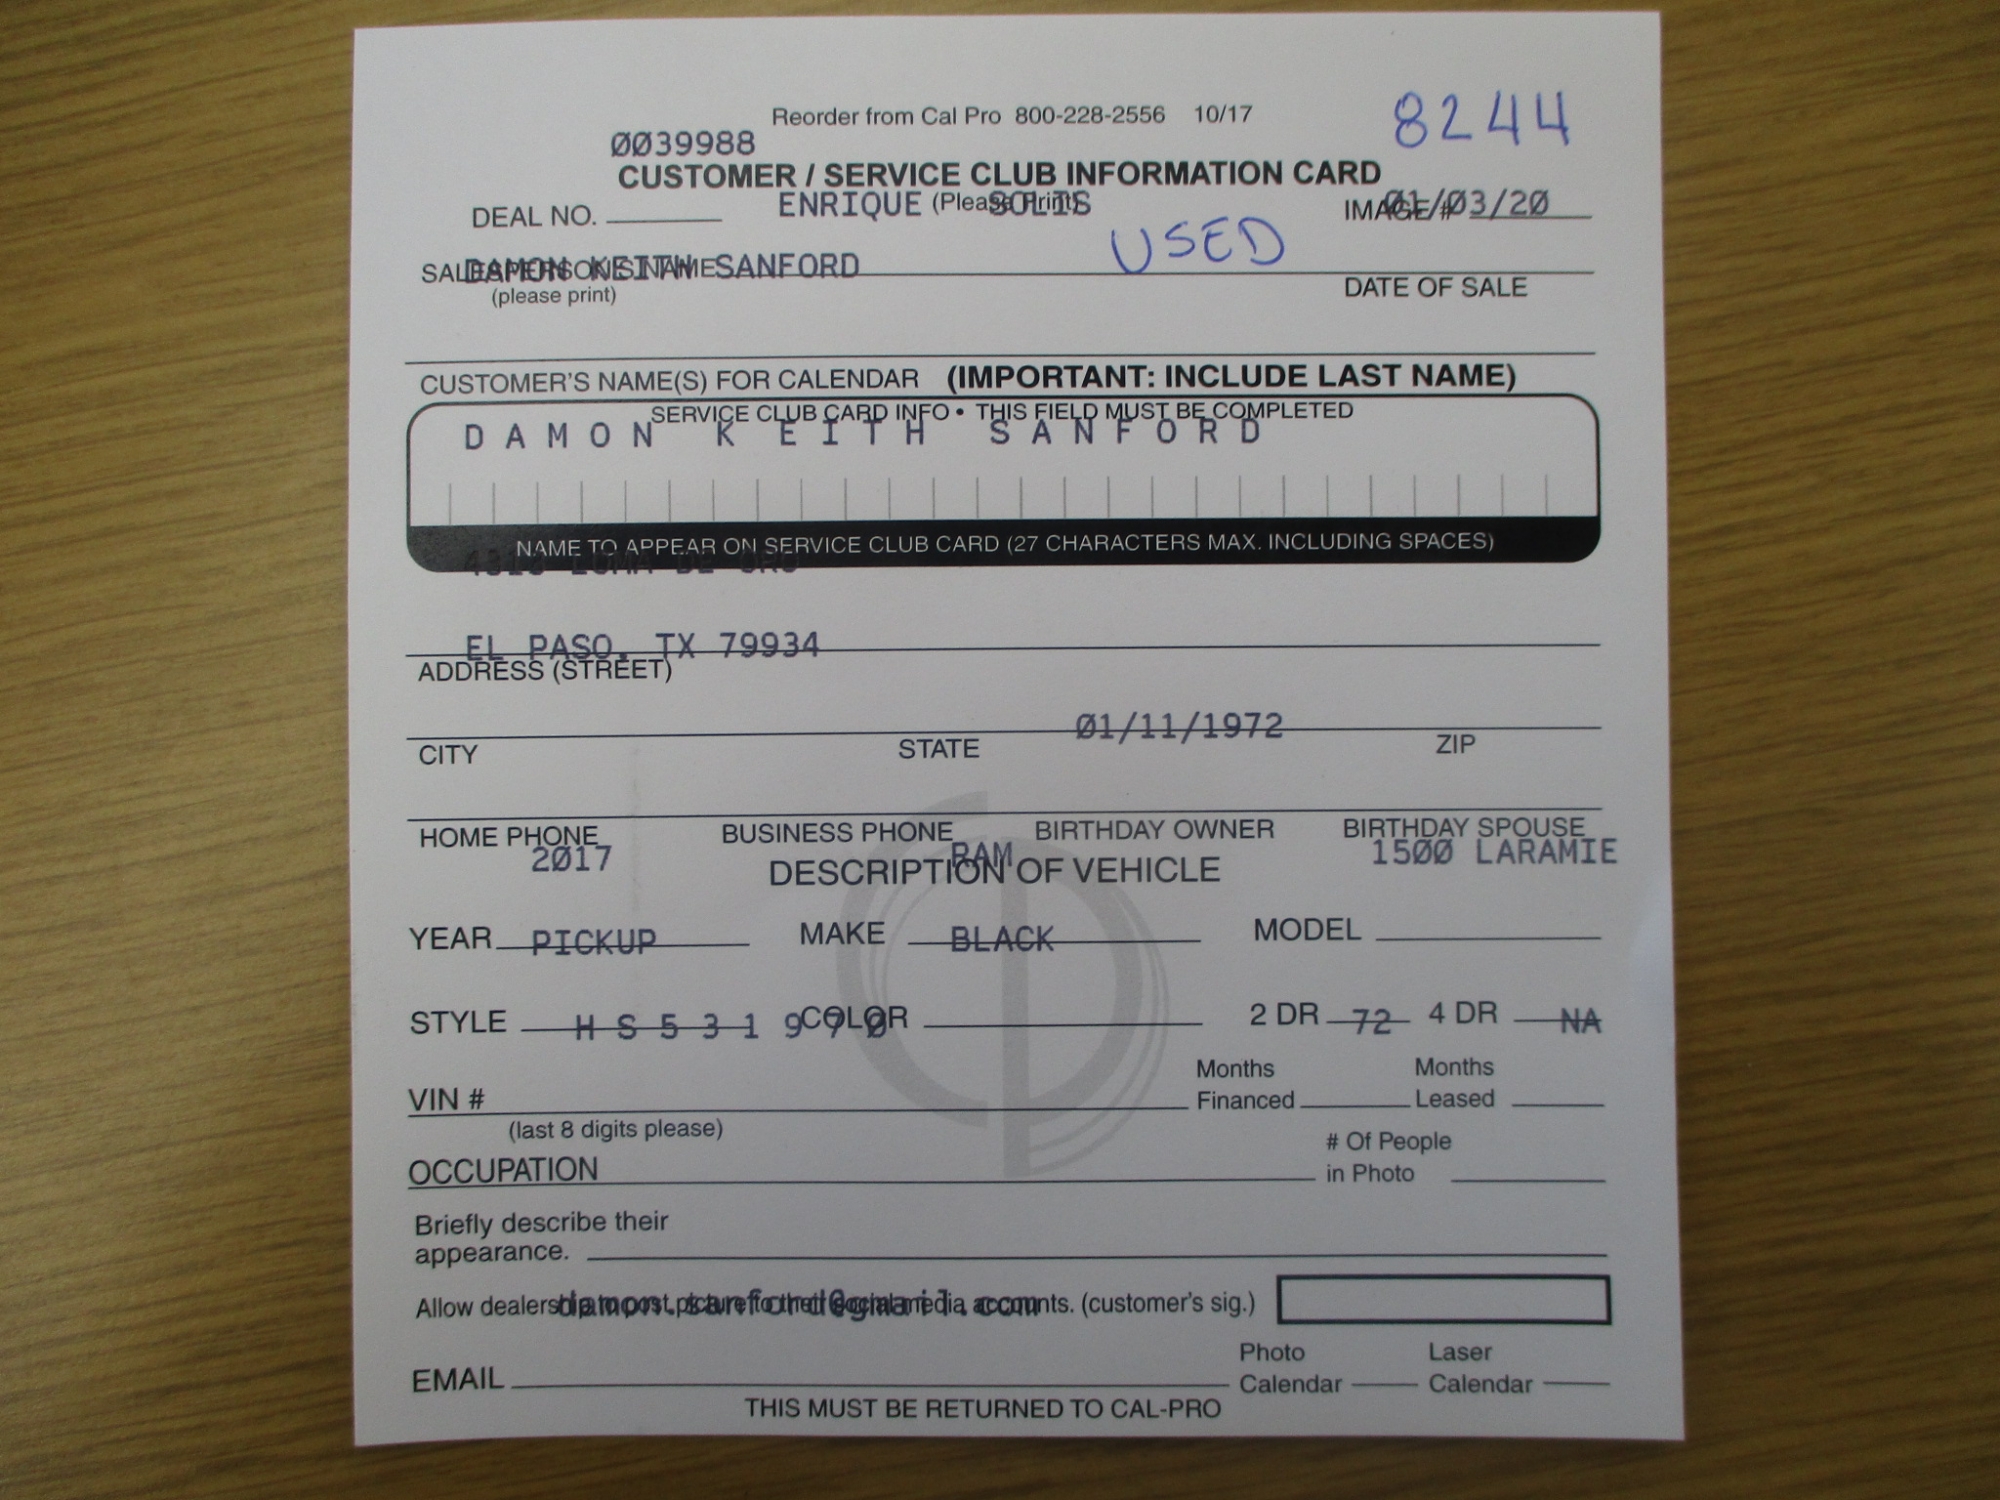 Reorder from Cal Pro 800-228-2556 10/17
8244
0039988
CUSTOMER / SERVICE CLUB INFORMATION CARD
ENRIQUE SOLIS (Please Print) 01/03/20
DEAL NO. IMAGE#
USED
DAMON KEITH SANFORD
SALESPERSON'S NAME
(please print) DATE OF SALE
CUSTOMER'S NAME(S) FOR CALENDAR (IMPORTANT: INCLUDE LAST NAME)
SERVICE CLUB CARD INFO • THIS FIELD MUST BE COMPLETED
DAMON KEITH SANFORD
NAME TO APPEAR ON SERVICE CLUB CARD (27 CHARACTERS MAX. INCLUDING SPACES)
LOMA DE ORO
EL PASO, TX 79934
ADDRESS (STREET)
01/11/1972
CITY STATE ZIP
HOME PHONE BUSINESS PHONE BIRTHDAY OWNER BIRTHDAY SPOUSE
2017 RAM 1500 LARAMIE
DESCRIPTION OF VEHICLE
YEAR PICKUP MAKE BLACK MODEL
STYLE HS531970 COLOR 2 DR 72 4 DR NA
Months Months
VIN # Financed Leased
(last 8 digits please)
# Of People
OCCUPATION in Photo
Briefly describe their
appearance.
damon.sanford@gmail.com
Allow dealership to post picture to their social media accounts. (customer's sig.)
Photo Laser
EMAIL Calendar Calendar
THIS MUST BE RETURNED TO CAL-PRO